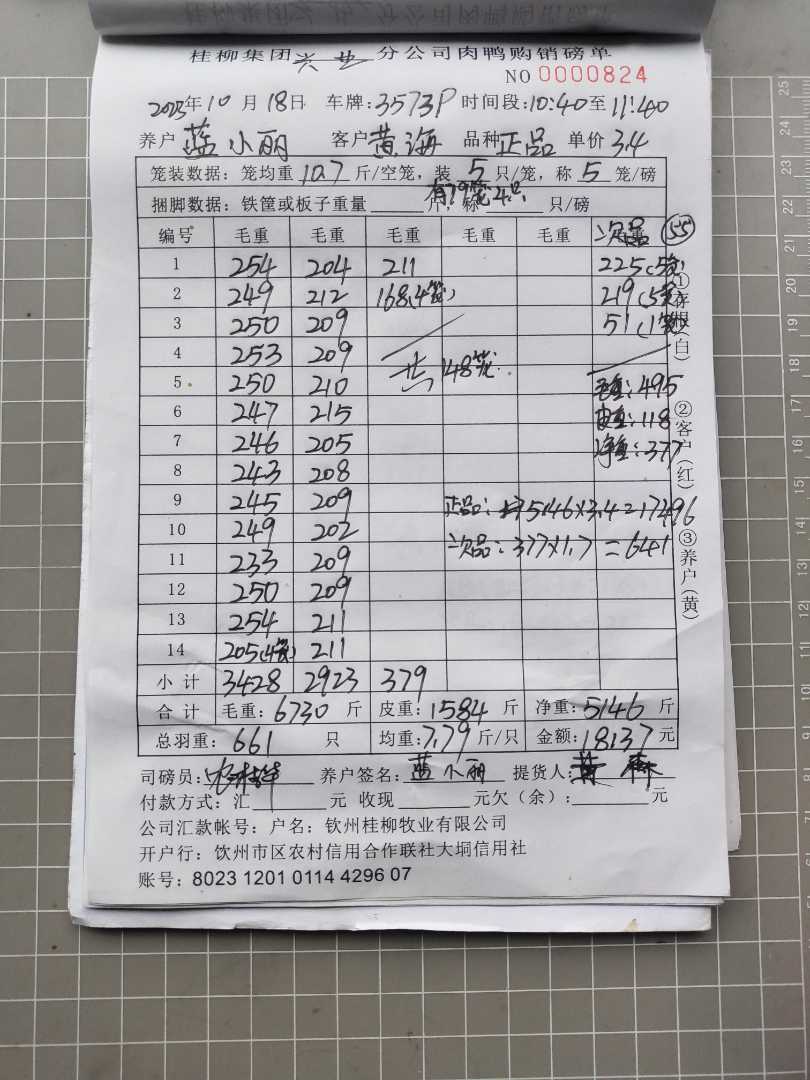 桂柳集团兴业分公司肉鸭购销磅单
NO 0000824
2025年10月18日 车牌:3573P 时间段:10:40至11:40
养户 蓝小丽 客户 黄海 品种 正品 单价 3.4
笼装数据：笼均重 10.7 斤/空笼，装 5 只/笼，称 5 笼/磅
有79笼4只
捆脚数据：铁筐或板子重量 斤，称 只/磅
编号 毛重 毛重 毛重 毛重 毛重 次品 55
1 254 204 211 225(5笼)
2 249 212 168(4笼) 219(5笼)
3 250 209 51(1笼)
4 253 209 共148笼
5 250 210 毛重:495
6 247 215 皮重:118
7 246 205 净重:377
8 243 208
9 245 209 正品:5146×3.4=17496
10 249 202
11 233 209 次品:377×1.7=641
12 250 209
13 254 211
14 205(4笼) 211
小计 3428 2923 379
合计 毛重:6730 斤 皮重:1584 斤 净重:5146 斤
总羽重:661 只 均重:7.79 斤/只 金额:18137 元
司磅员: 养户签名:蓝小丽 提货人:
付款方式:汇 元 收现 元欠(余):元
公司汇款帐号：户名：钦州桂柳牧业有限公司
开户行：饮州市区农村信用合作联社大垌信用社
账号：8023 1201 0114 4296 07
①存根(白)
②客户(红)
③养户(黄)